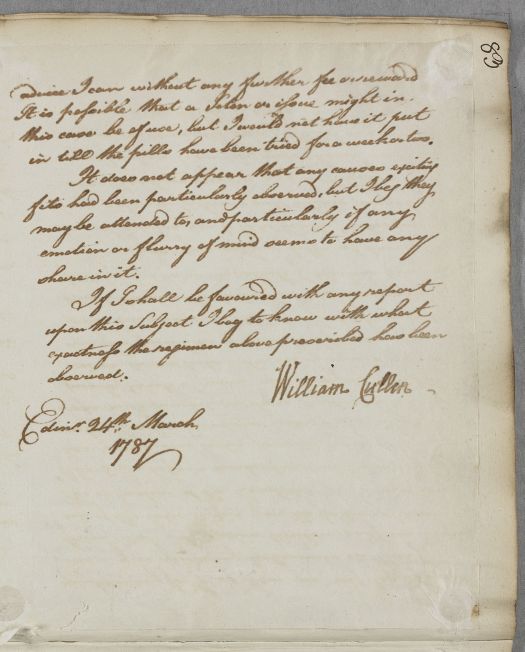 68
advice I can without any further fee or reward
It is possible that a Seton or issue might in
this case be of use, but I would not have it put
in till the pills have been tried for a week or two.
It does not appear that any causes exciting
fits had been particularly observed, but I beg they
may be attended to, and particularly if any
emotion or flurry of mind seems to have any
share in it.
If I shall be favoured with any report
upon this Subject I beg to know with what
exactness the regimen above prescribed has been
observed.
William Cullen
Edinr. 24th. March
1787